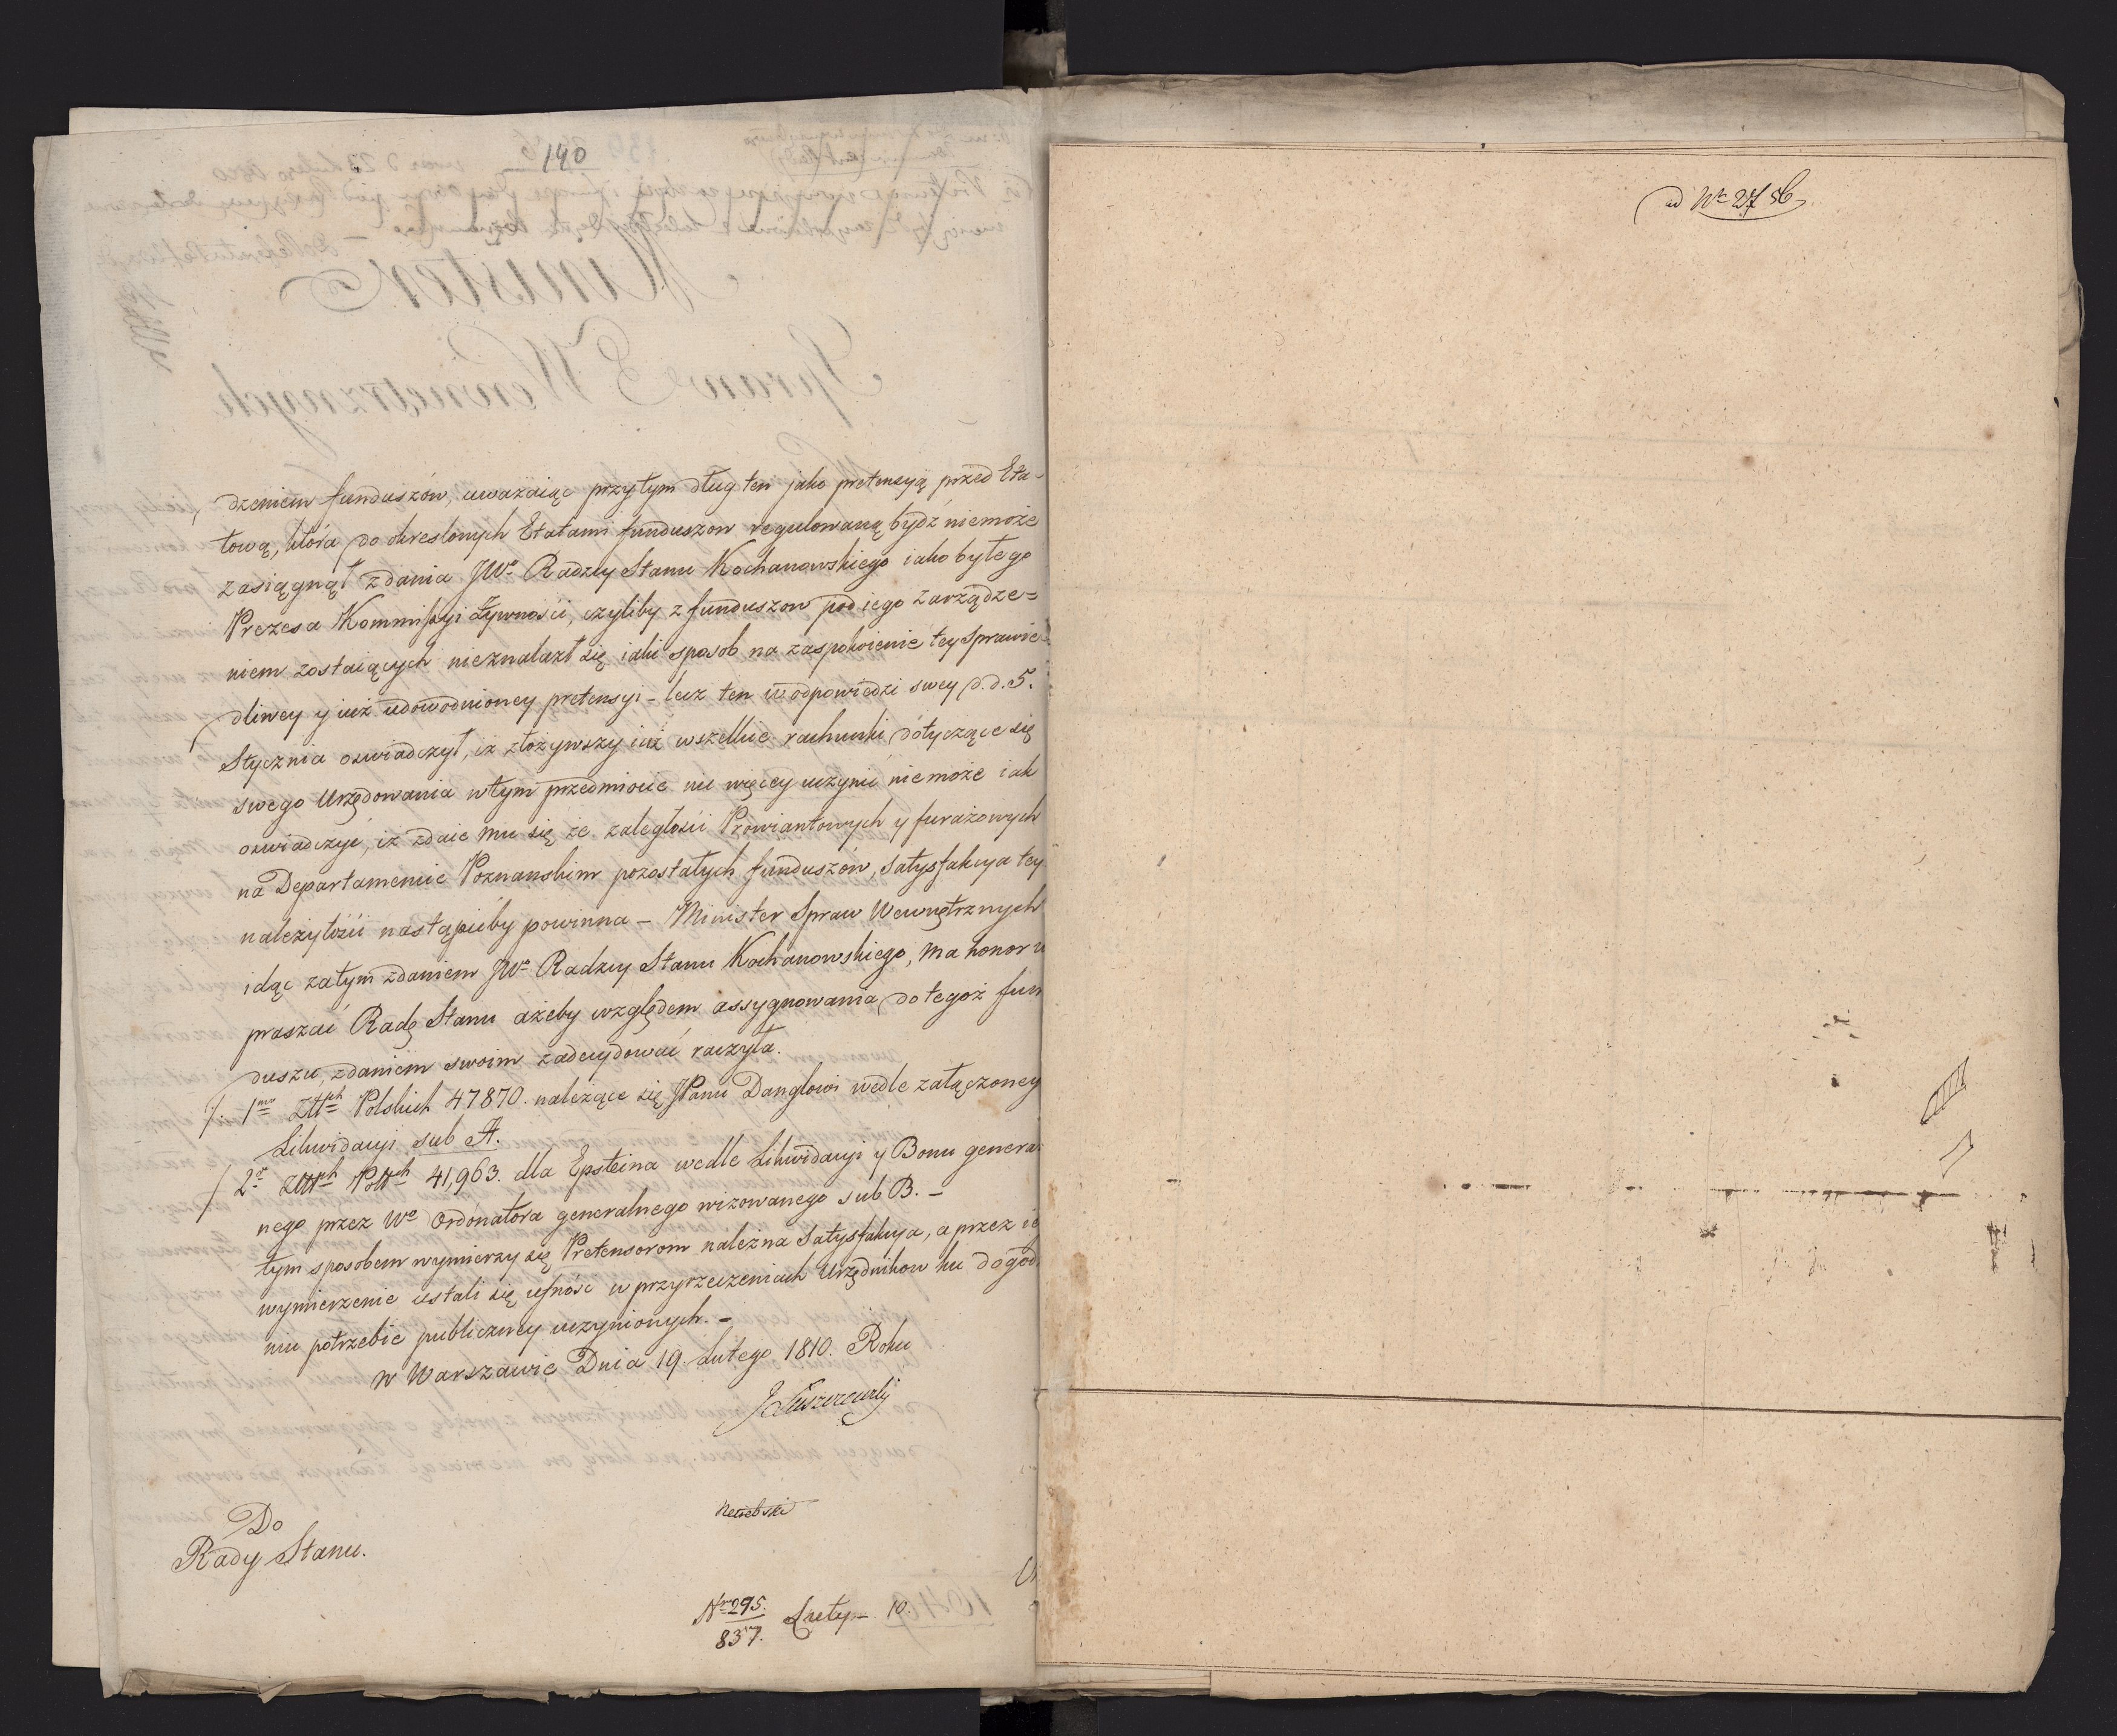 140
dzeniem funduszów, uważaiąc przytym dług ten jako pretensyą przed Eta-
tową, która do okreslonych Etatami funduszow regulowaną bydź niemoże
zasiągnął zdania JWo Radzcy Stanu Kochanowskiego iako byłego
Prezesa Kommissyi Żywności, czyliby z funduszow pod iego Zarządze=
niem zostaiących, nieznalazł się iaki sposob na zaspokoienie tey sprawie
dliwey y iuż udowodnioney pretensyi - lecz ten w odpowiedzi swey d. d. 5.
Stycznia oswiadczył, iż złożywszy iuż wszelkie rachunki dotyczące się
swego Urzędowania w tym przedmiocie nic więcey uczynić niemoże iak
oswiadczyć, iż zdaie mu się że zaległości Prowiantowych y furażowych
na Departamencie Poznanskim pozostałych funduszów, satysfakcya tey
należytości nastąpićby powinna - Minister Spraw Wewnętrznych
idąc zatym zdaniem JWo Radzcy Stanu Kochanowskiego, ma honor u
praszać Radę Stanu ażeby względem assygnowania do tegoż fun
duszu, zdaniem swoim zadecydować raczyła.
1mo Złłch Polskich 47870. należące się JPanu Danglowi wedle załączoney
Likwidacyi sub A.
2o Złłch Polch 41,963. dla Epsteina wedle Likwidacyi y Bonu general
nego przez Wo Ordonatora generalnego wizowanego sub B. -
tym sposobem wymierzy się Pretensorom należna satysfakcya, a przez ie
wymierzenie ustali się ufność w przyrzeczeniach Urzędnikow ku dogod
niu potrzebie publiczney uczynionych. -
w Warszawie Dnia 19 Lutego 1810. Roku
JŁuszczewski
Do
Rady Stanu.
Nro 295.
837.
10.
ad Nr 2756